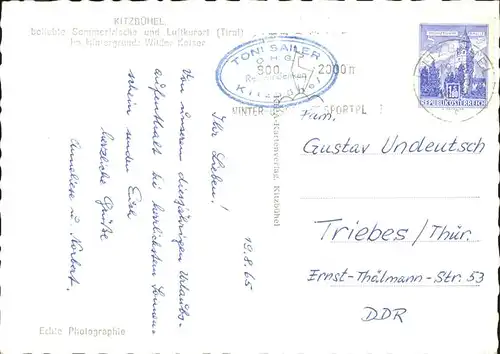 KITZBÜHEL
beliebte Sommerfrische und Luftkurort (Tirol)
Im Hintergrund: Wilder Kaiser
TONI SAILER
O H G
Kitzbühel
800 2000 m
WINTER SPORTPL
REPUBLIK ÖSTERREICH
Kartenverlag, Kitzbühel
19.8.65
Ihr Lieben!
Von unserem diesjährigen Urlaubs-
aufenthalt bei herrlichstem Sonnen-
schein senden Euch
herzliche Grüße
Anneliese u. Norbert.
Fam.
Gustav Undeutsch
Triebes/Thür.
Ernst-Thälmann-Str. 53
DDR
Echte Photographie